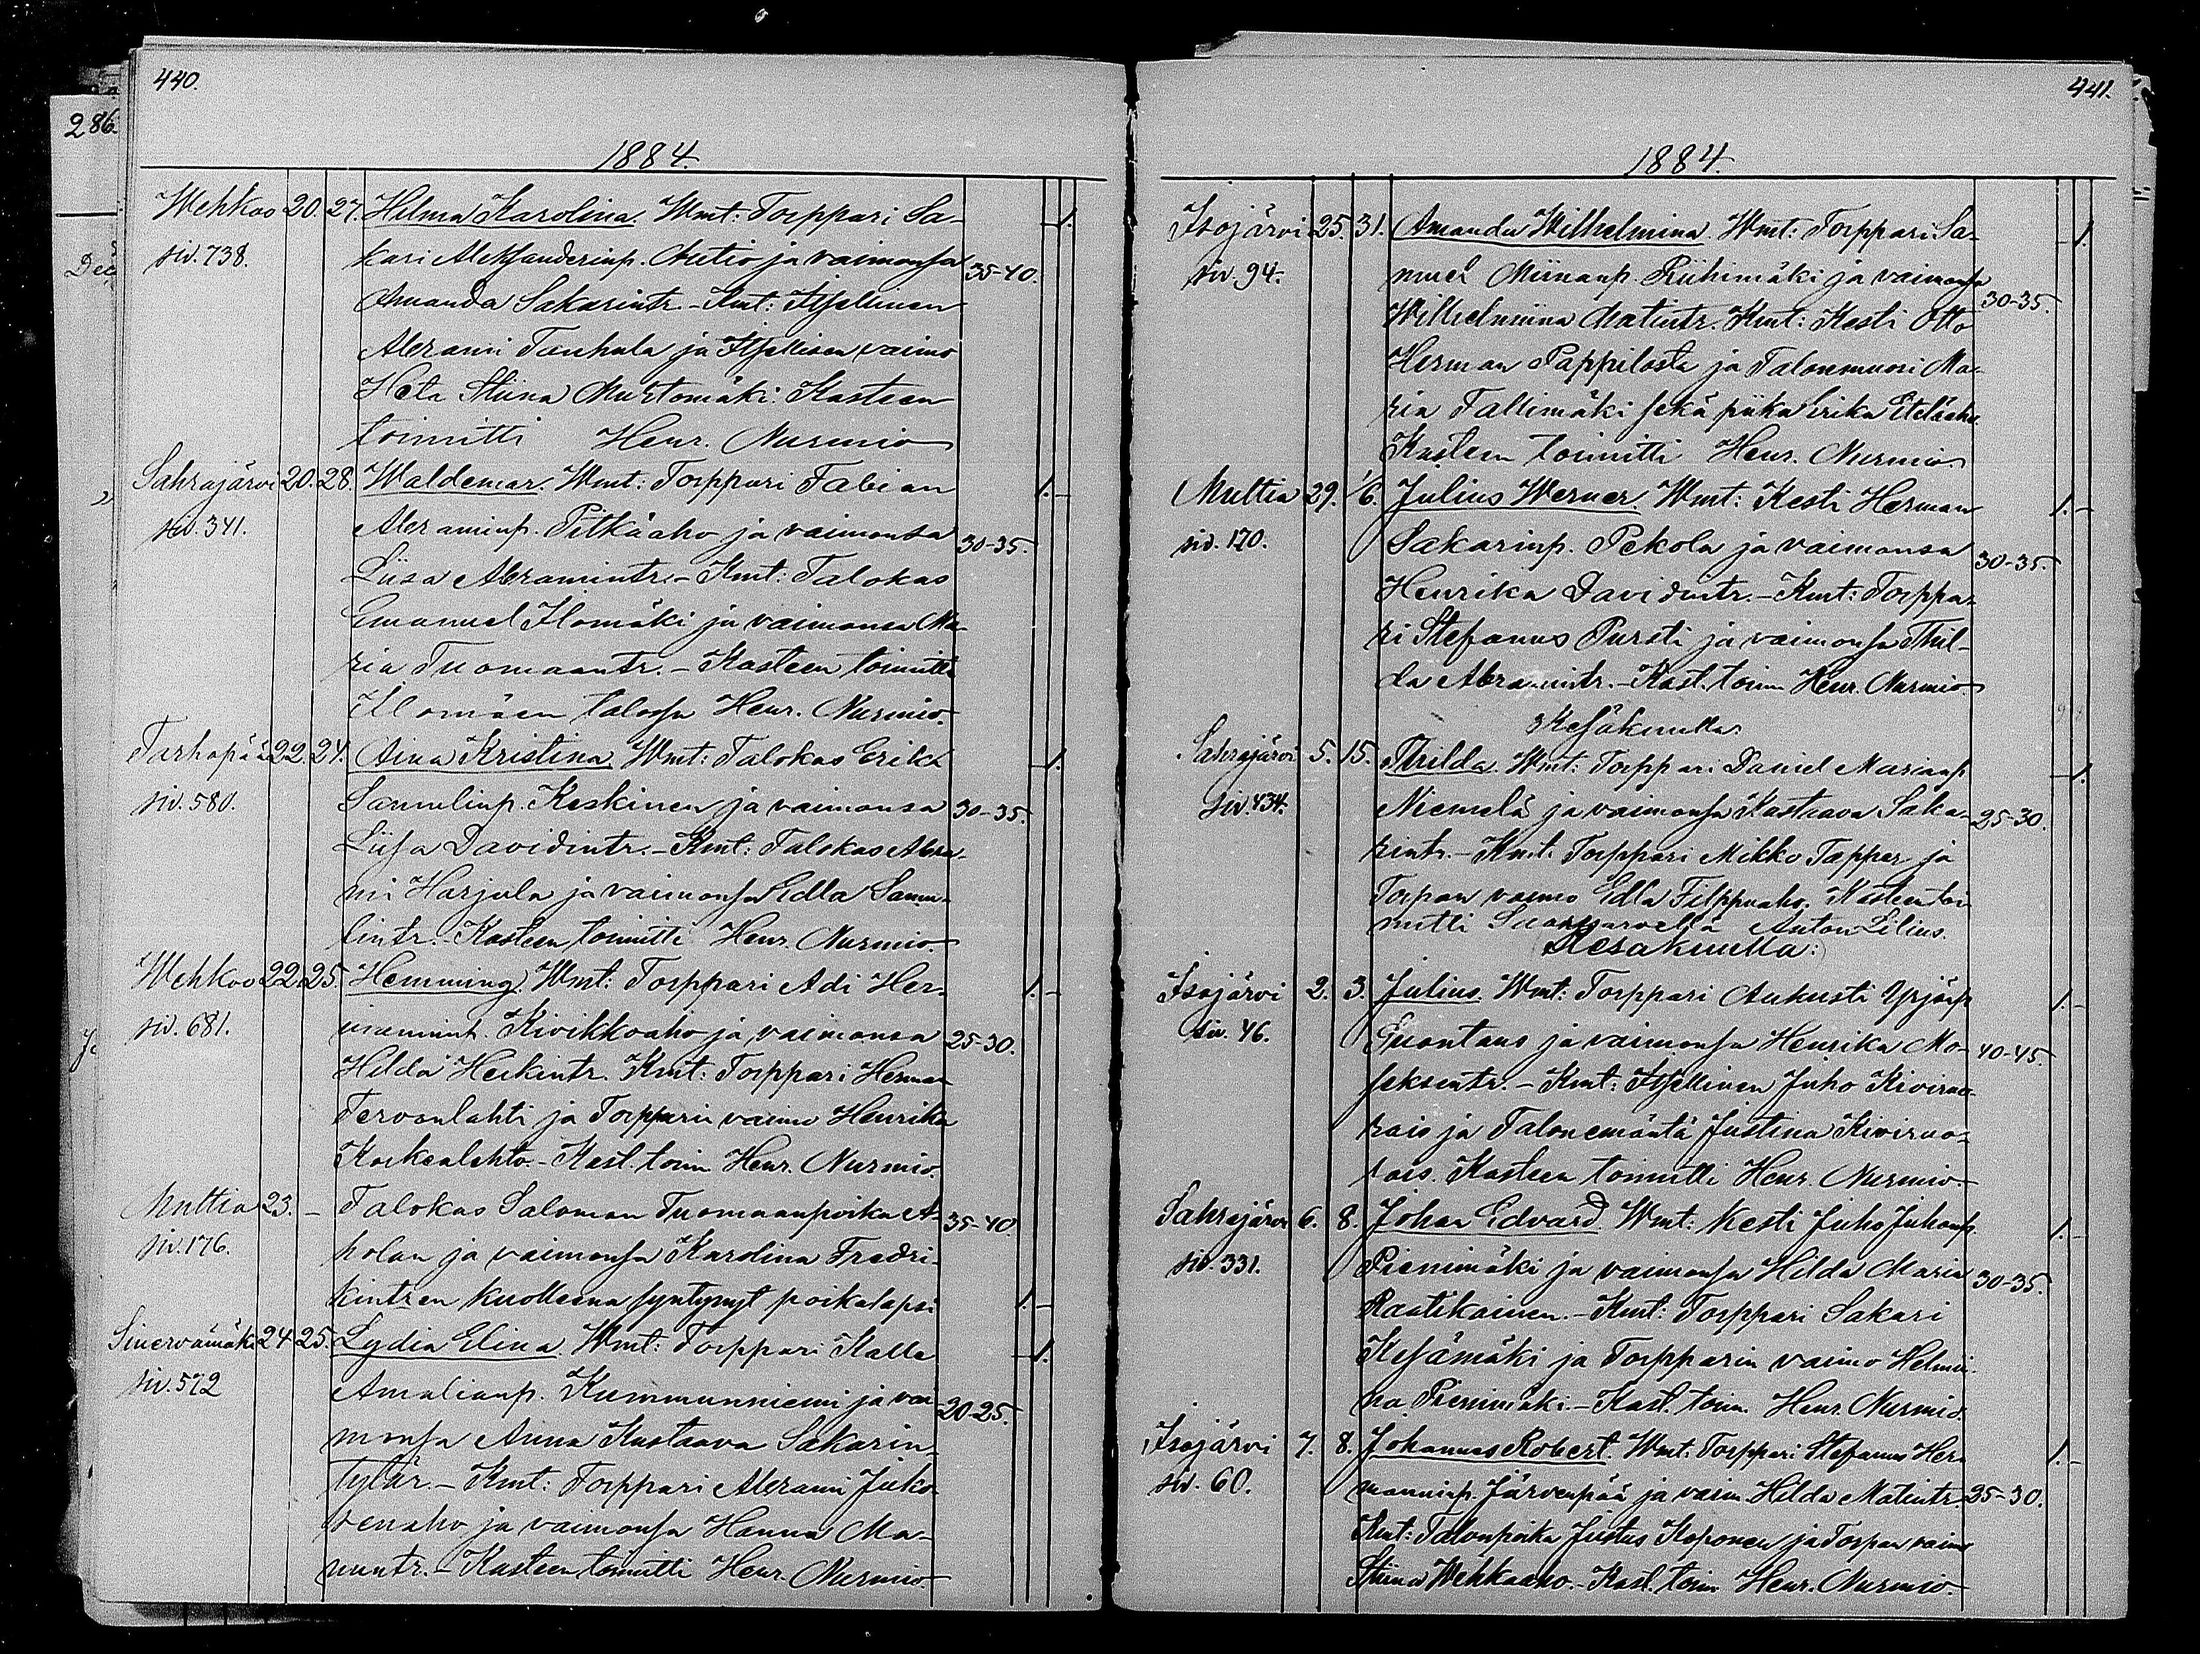 440.
286.
1884.
Wehkoo 20. 27. Hilma Karolina. Wmt: Torppari Sa-
siv. 738. kari Aleksanderinp. Autio ja vaimonsa 35-40.
Amanda Sakarintr. - Kmt: Itsellinen
Abrami Tauhula ja Itsellisen vaimo
Heta Stiina Murtomäki: Kasteen
toimitti Henr. Nurmio
Sahrajärvi 20. 28. Waldemar. Wmt: Torppari Fabian
siv. 341. Abraminp. Pitkäaho ja vaimonsa 30-35.
Liisa Abramintr. - Kmt: Talokas
Emanuel Ilomäki ja vaimonsa Ma-
ria Tuomaantr. - Kasteen toimitti
Ilomäen talossa Henr. Nurmio.
Tarhapää 22. 24. Aina Kristina. Wmt: Talokas Erik
siv. 580. Samulinp. Keskinen ja vaimonsa 30-35.
Liisa Davidintr. - Kmt: Talokas Abra-
mi Harjula ja vaimonsa Edla Samu-
lintr. - Kasteen toimitti Henr. Nurmio.
Wehkoo 22. 25. Hemming. Wmt: Torppari Adi Her-
siv. 681. Kivikkoaho ja vaimonsa 25-30.
Hilda Heikintr. Kmt: Torppari Herman
Tervanlahti ja Torpparin vaimo Henrika
Koskenlehto. - Kast. toim Henr. Nurmio.
Multia 23. - Talokas Saloman Tuomaanpoika A- 35-40.
siv. 176. holan ja vaimonsa Karolina Fredri-
kintren kuolleena syntynyt poikalapsi 1. -
Sinervämäki 24 25. Lydia Elina. Wmt: Torppari Kalle
siv. 572 Amalianp. Kummunniemi ja vai- 20-25.
monsa Anna Kustaava Sakarin-
tytär. - Kmt: Torppari Abrami Juko-
venaho ja vaimonsa Hanna Ma-
nuntr. - Kasteen toimitti Henr. Nurmio.
441.
1884.
Isojärvi 25. 31. Amanda Wilhelmina. Wmt: Torppari Sa-
siv. 94. muel Miinanp. Riihimäki ja vaimonsa 30-35.
Wilhelmiina Matintr. Kmt: Kesti Otto
Herman Pappilasta ja Talonmuori Ma-
ria Tallimäki sekä piika Erika Eteläaho.
Kasteen toimitti Henr. Nurmio.
Multia 29. 1/6. Julius Werner. Wmt: Kesti Herman
siv. 120. Sakarinp. Pekola ja vaimonsa 30-35.
Henrika Davidintr. - Kmt: Torppa-
ri Stefanus Pursti ja vaimonsa Thil-
da Abramintr. - Kast. toim Henr. Nurmio.
Kesäkuulla
Sahrajärvi 5. 15. Thilda. Wmt: Torppari Daniel Marianp
siv. 434. Niemelä ja vaimonsa Kustaava Saka- 25-30.
rintr. - Kmt. Torppari Mikko Tapper ja
Torpan vaimo Edla Filppuaho. Kasteen toi-
mitti Anton Lilius.
Kesäkuulla:
Isojärvi 2. 3. Julius. Wmt: Torppari Aukusti Yrjönp
siv. 46. ja vaimonsa Henrika Mo- 40-45.
seksentr. - Kmt: Itsellinen Juho Kiviruo-
kais ja Talonemäntä Justina Kiviruo-
kais. Kasteen toimitti Henr. Nurmio
Sahrajärvi 6. 8. Johan Edvard. Wmt: Kesti Juho Juhonp.
siv. 331. Pienimäki ja vaimonsa Hilda Maria 30-35.
Raatikainen. - Kmt: Torppari Sakari
Kesämäki ja Torpparin vaimo Helmii-
na Pienimäki. - Kast. toim. Henr. Nurmio.
Isojärvi 7. 8. Johannes Robert. Wmt: Torppari Stefanus Her-
siv. 60. manninp. Järvenpää ja vaim. Hilda Matintr. 25-30.
Kmt: Talonpoika Justus Koponen ja Torpan vaimo
Stiina Wehkaaho. - Kast. toim Henr. Nurmio.